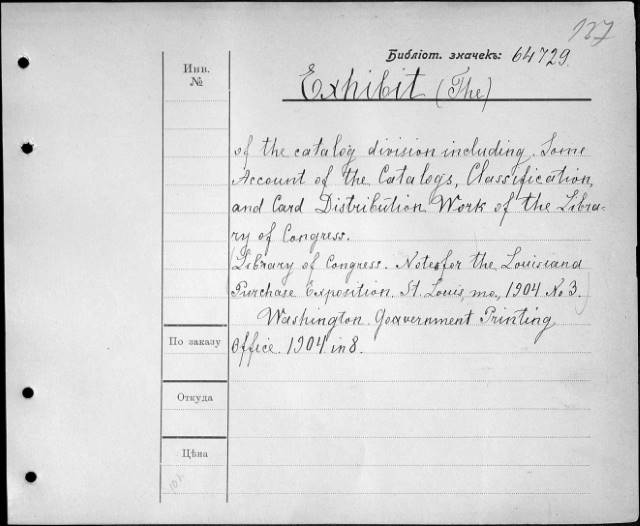 137
Библіот. значекъ: 64729.
Инв.
№
Exhibit (The)
of the catalog division including. Some
Account of the Catalogs, Classification,
and Card Distribution Work of the Libra-
ry of Congress.
Library of Congress. Notes for the Louisiana
Purchase Exposition. St. Louis, mo., 1904 No 3.
Washington. Goavernment Printing
Office. 1904 in 8.
По заказу
Откуда
Цѣна